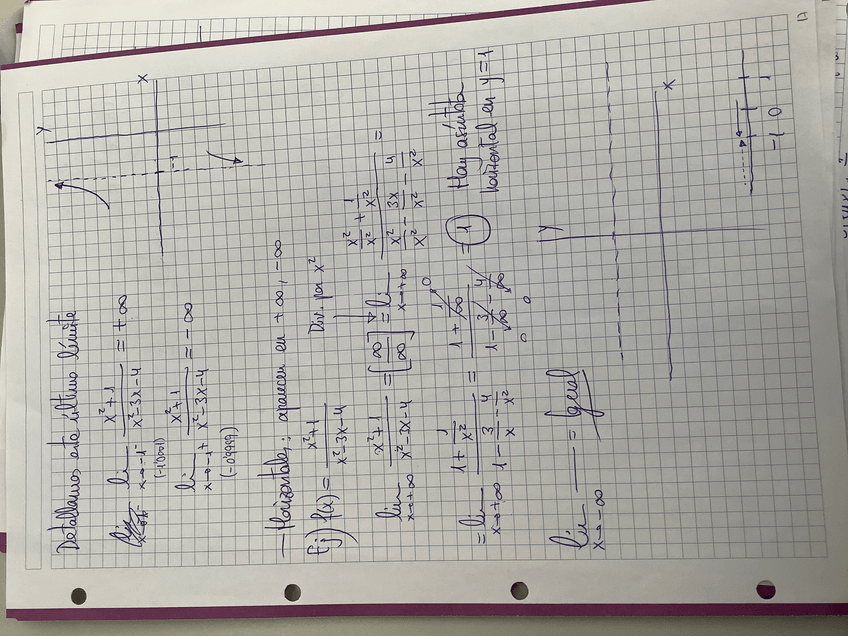 Detallamos este último límite
lim x→-1⁻ (-1'0001) x²+1 / x²-3x-4 = +∞
lim x→-1⁺ (-0'9999) x²+1 / x²-3x-4 = -∞
Y
X
-1
— Horizontales: aparecen en +∞, -∞
Ej) f(x) = x²+1 / x²-3x-4
Div. por x²
lim x→+∞ x²+1 / x²-3x-4 = [∞/∞] = lim x→+∞ (x²/x² + 1/x²) / (x²/x² - 3x/x² - 4/x²) =
= lim x→+∞ (1 + 1/x²) / (1 - 3/x - 4/x²) = (1 + 1/∞) / (1 - 3/∞ - 4/∞) = 1
0
0
0
Hay asíntota
horizontal en y=1
lim x→-∞ —— = Igual
Y
X
-1 0 1